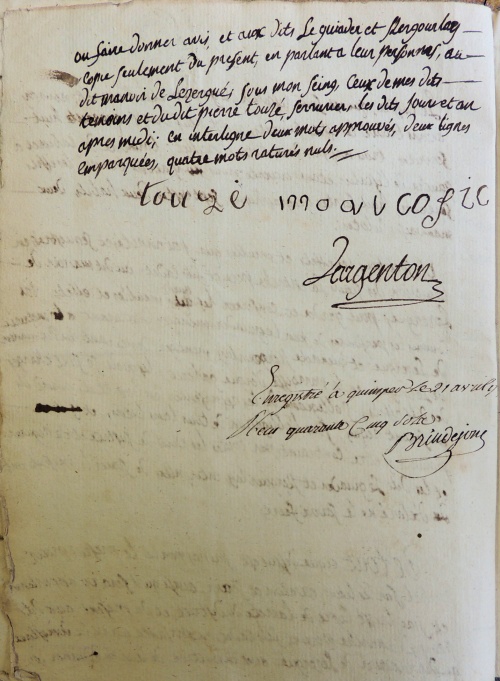 ou faire donner avis, et aux dits Le guiader et Kergourlay
copie seulement du present, en parlant a leur personnes, au
dit manoir de Lezergué, sous mon seing, ceux de mes dits
temoins et du dit pierre touzé, serrurier, les dits jour et an
apres midi; en interligne deux mots approuvés, deux lignes
emparquées, quatre mots raturés nuls.
touzé
Largenton
Enregistré à quimper le 21 avril
Reçu quarante Cinq sols
Brindejonc